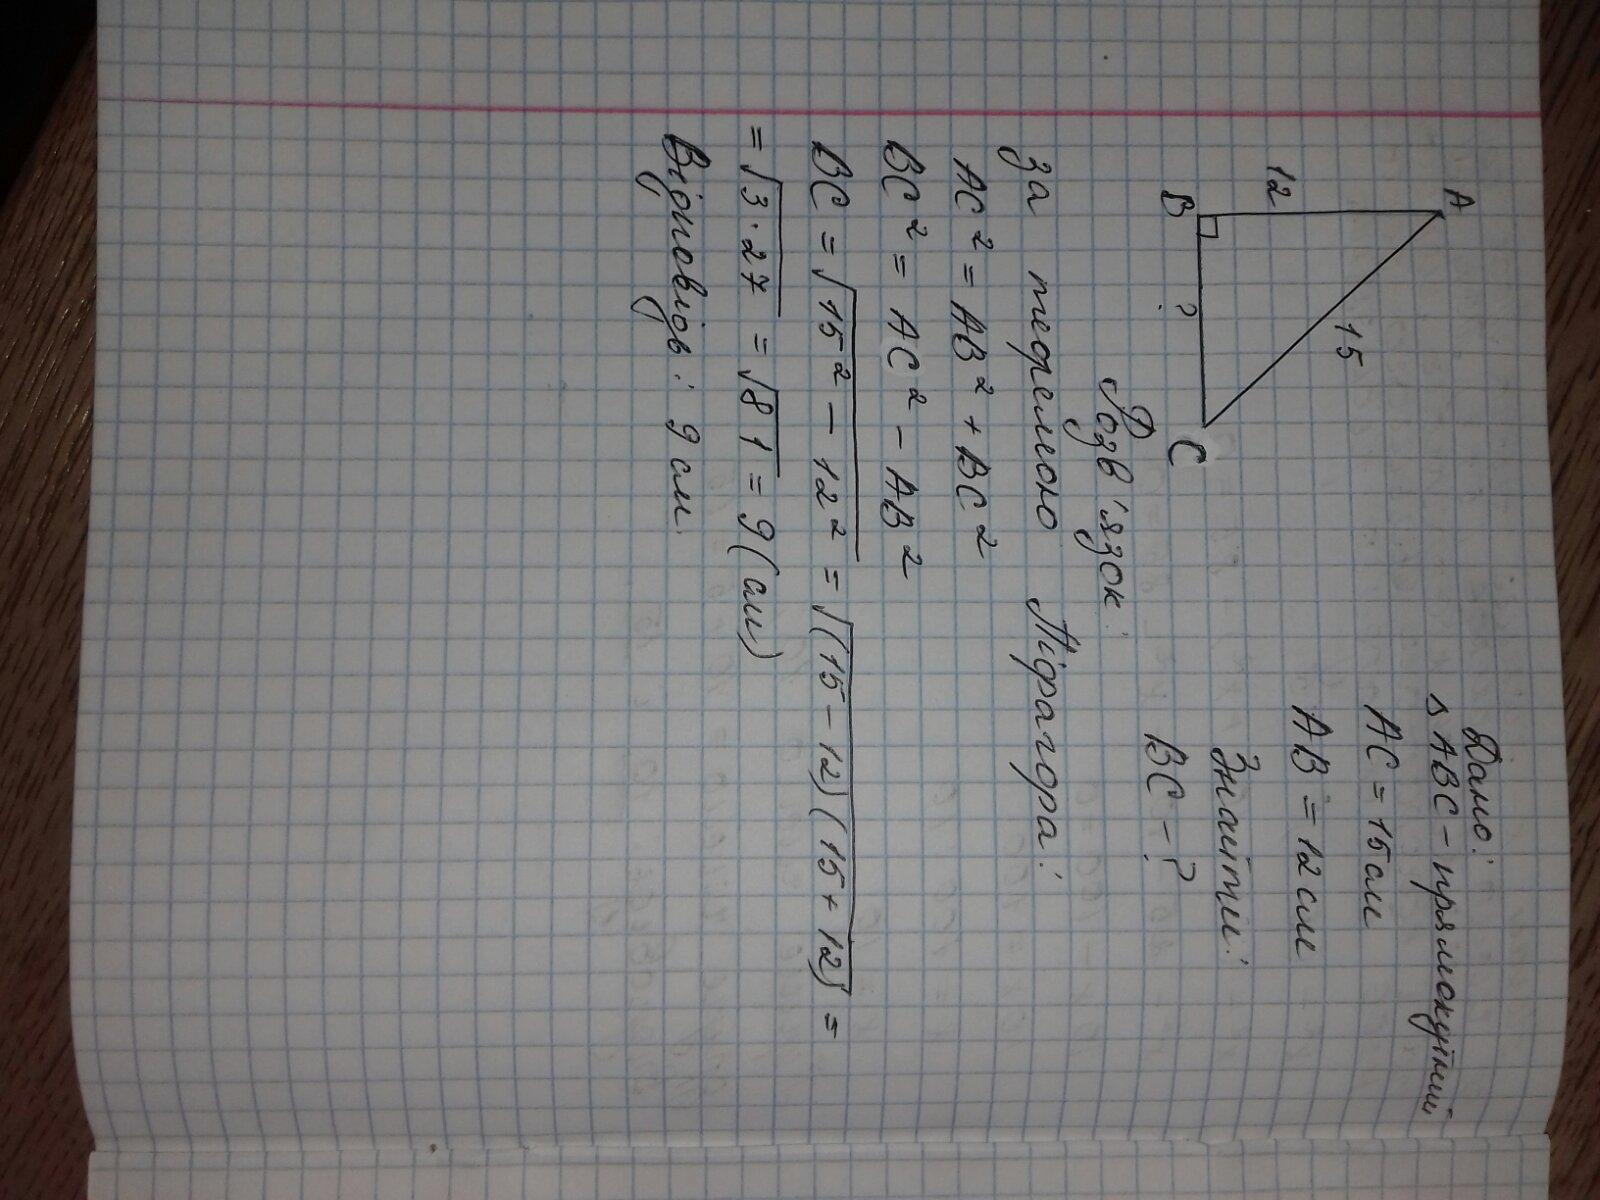 A
12
15
B
?
C
Дано:
△ABC - прямокутний
AC = 15 см
AB = 12 см
Знайти:
BC - ?
Розв'язок:
За теоремою Піфагора:
AC² = AB² + BC²
BC² = AC² - AB²
BC = √15² - 12² = √(15 - 12)(15 + 12) =
= √3·27 = √81 = 9 (см)
Відповідь: 9 см.